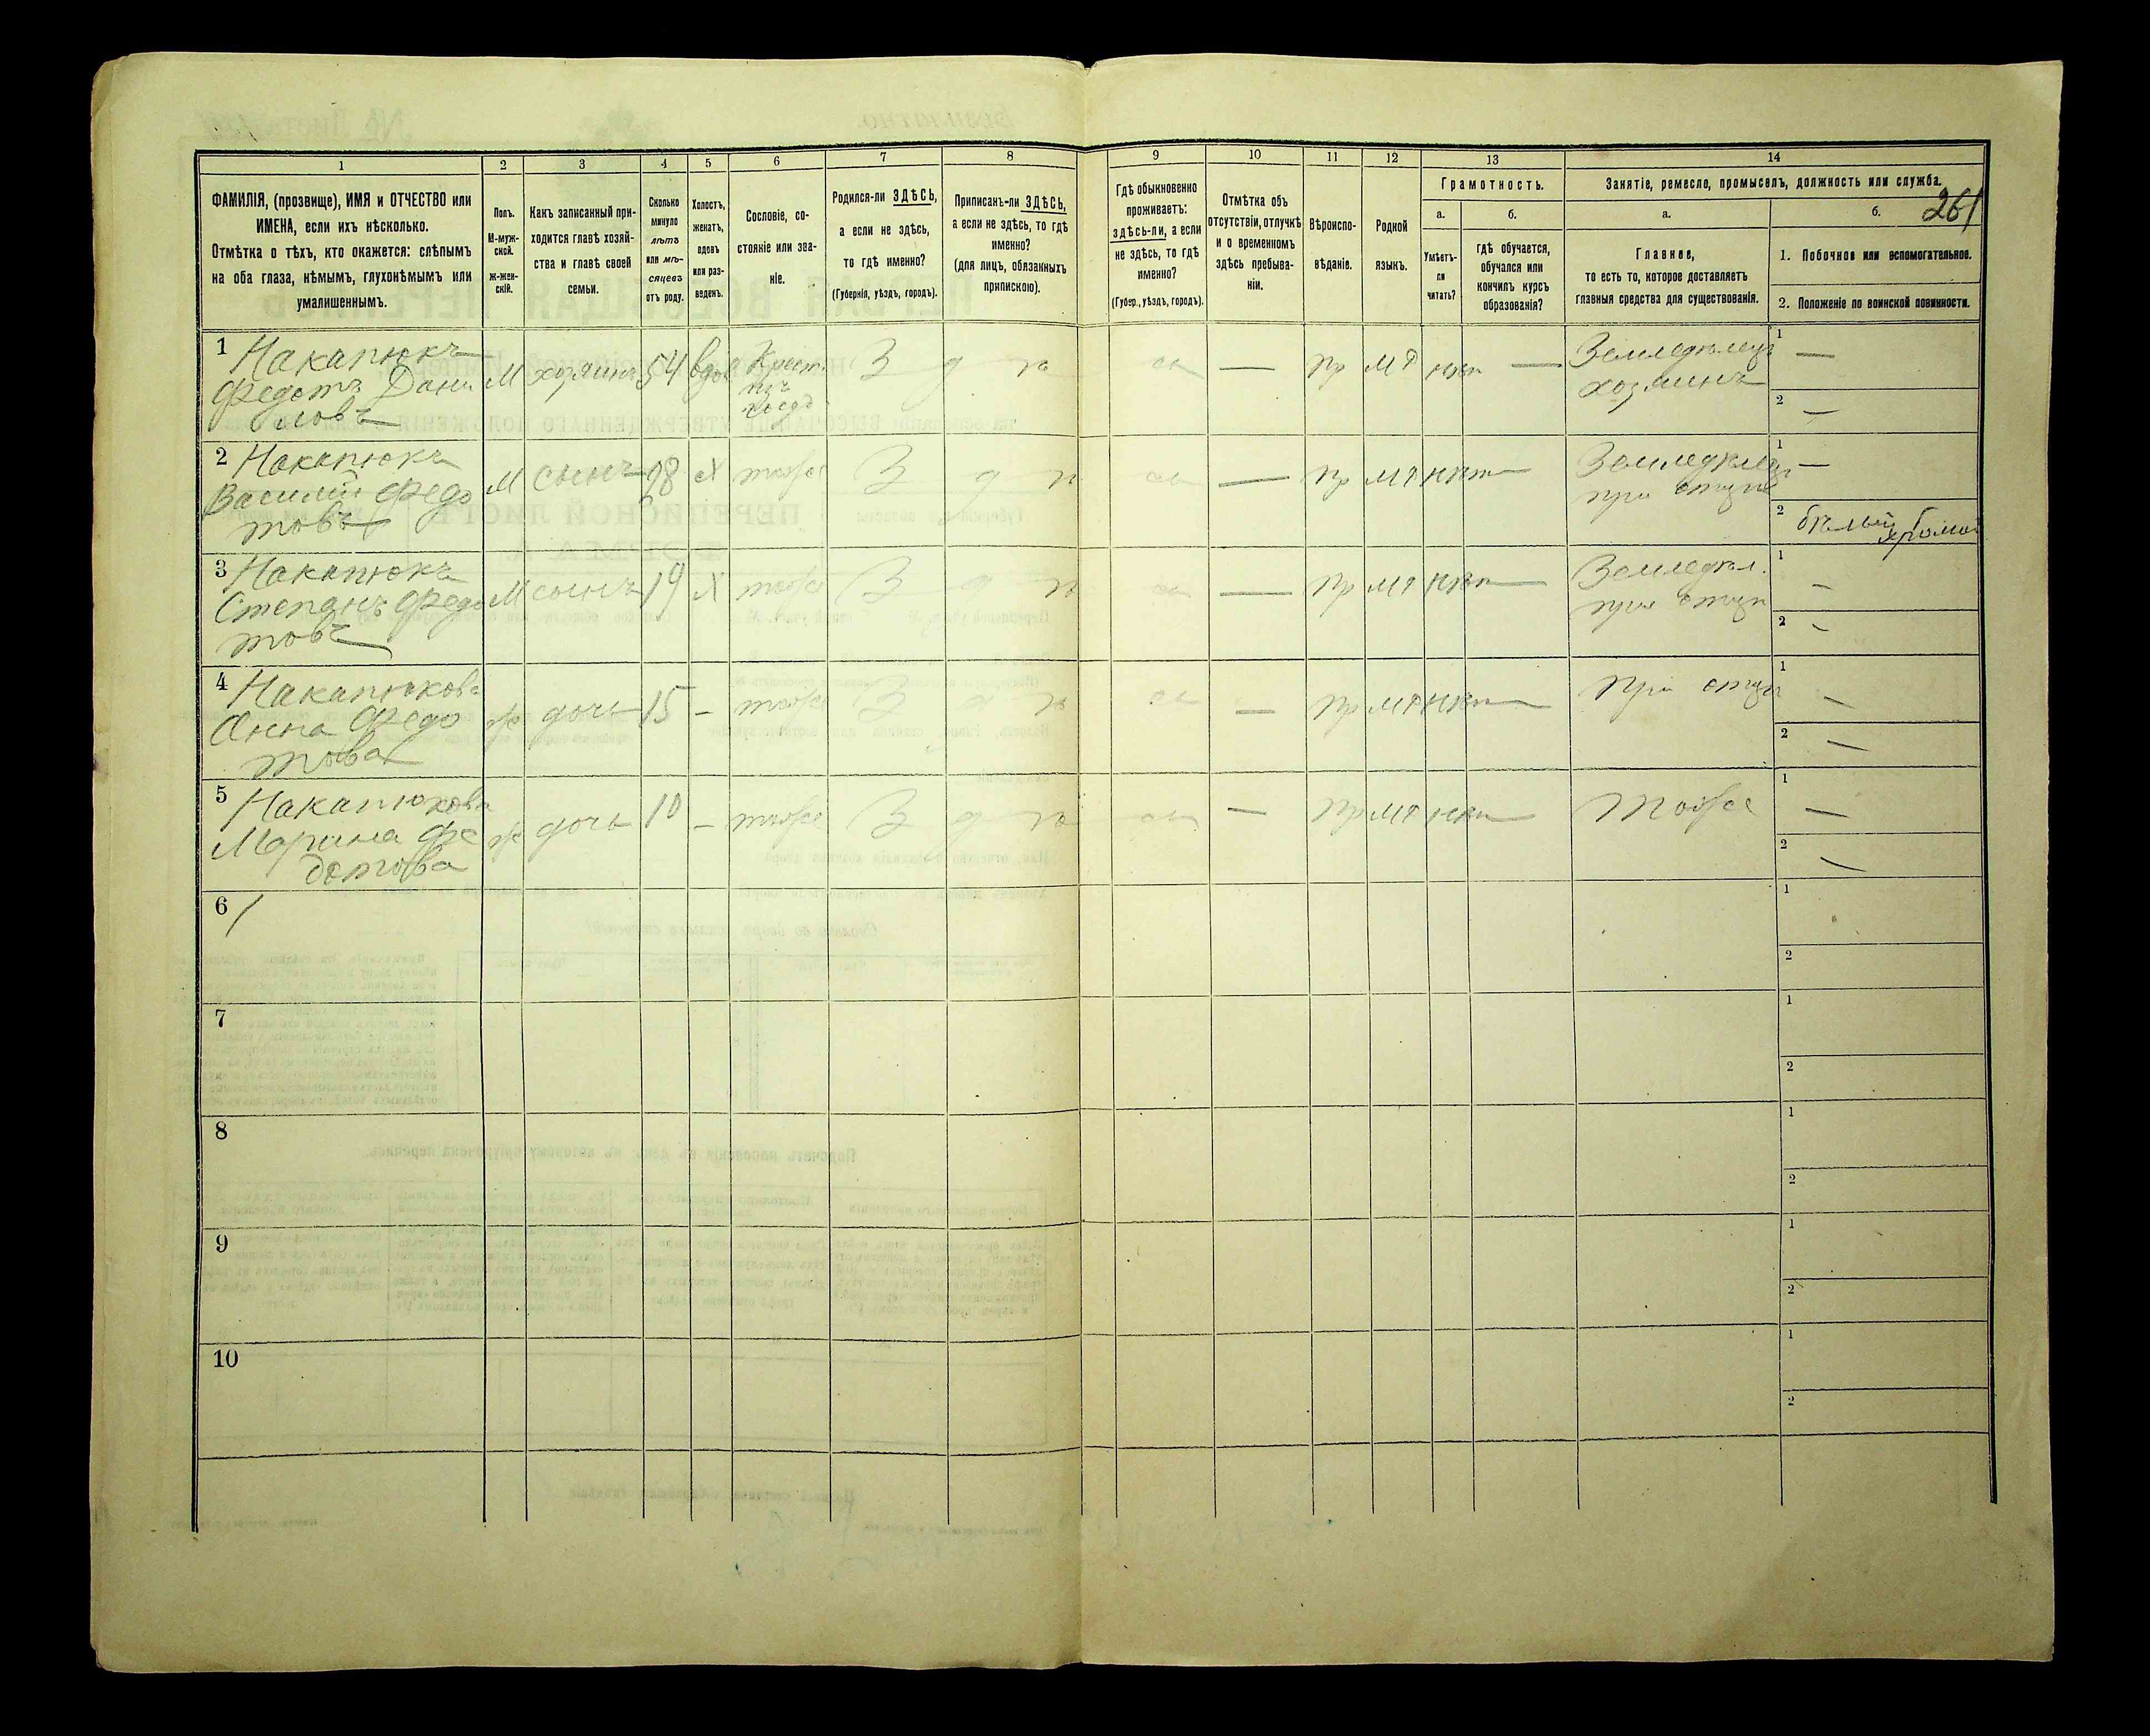 1 2 3 4 5 6 7 8 9 10 11 12 13 14
ФАМИЛІЯ, (прозвище), ИМЯ и ОТЧЕСТВО или
ИМЕНА, если ихъ нѣсколько.
Отмѣтка о тѣхъ, кто окажется: слѣпымъ
на оба глаза, нѣмымъ, глухонѣмымъ или
умалишеннымъ.
Полъ.
М-муж-
ской.
ж-жен-
скій.
Какъ записанный при-
ходится главѣ хозяй-
ства и главѣ своей
семьи.
Сколько
минуло
лѣтъ
или мѣ-
сяцевъ
отъ роду.
Холостъ,
женатъ,
вдовъ
или раз-
веденъ.
Сословіе, со-
стояніе или зва-
ніе.
Родился-ли ЗДѢСЬ,
а если не здѣсь,
то гдѣ именно?
(Губернія, уѣздъ, городъ).
Приписанъ-ли ЗДѢСЬ,
а если не здѣсь, то гдѣ
именно?
(для лицъ, обязанныхъ
припискою).
Гдѣ обыкновенно
проживаетъ:
здѣсь-ли, а если
не здѣсь, то гдѣ
именно?
(Губер., уѣздъ, городъ).
Отмѣтка объ
отсутствіи, отлучкѣ
и о временномъ
здѣсь пребыва-
ніи.
Вѣроиспо-
вѣданіе.
Родной
языкъ.
Грамотность.
а.
Умѣетъ-
ли
читать?
б.
гдѣ обучается,
обучался или
кончилъ курсъ
образованія?
Занятіе, ремесло, промыселъ, должность или служба.
261
а.
Главное,
то есть то, которое доставляетъ
главныя средства для существованія.
б.
1. Побочное или вспомогательное.
2. Положеніе по воинской повинности.
1 Накапюкъ
Федотъ Дани
ловъ
М хозяинъ 54 вдов Крест.
изъ
З д ѣ сь — Пр МР нѣт —
Земледѣлецъ
хозяинъ
1 —
2 —
2 Накапюкъ
Василій Федо
товъ
М сынъ 28 Х тоже З д ѣ сь — Пр МР нѣт —
Земледѣлец
при отцѣ
1 —
2 бѣлый хромой
3 Накапюкъ
Степанъ Федо
товъ
М сынъ 19 Х тоже З д ѣ сь — Пр МР нѣт —
Земледѣл.
при отцѣ
1 —
2 —
4 Накапюкова
Анна Федо
това
ж дочь 15 - тоже З д ѣ сь — Пр МР нѣт —
При отцѣ
1 —
2 —
5 Накапюкова
Марина Фе
дотова
ж дочь 10 - тоже З д ѣ сь — Пр МР нѣт —
Тоже
1 —
2 —
6
1
2
7
1
2
8
1
2
9
1
2
10
1
2